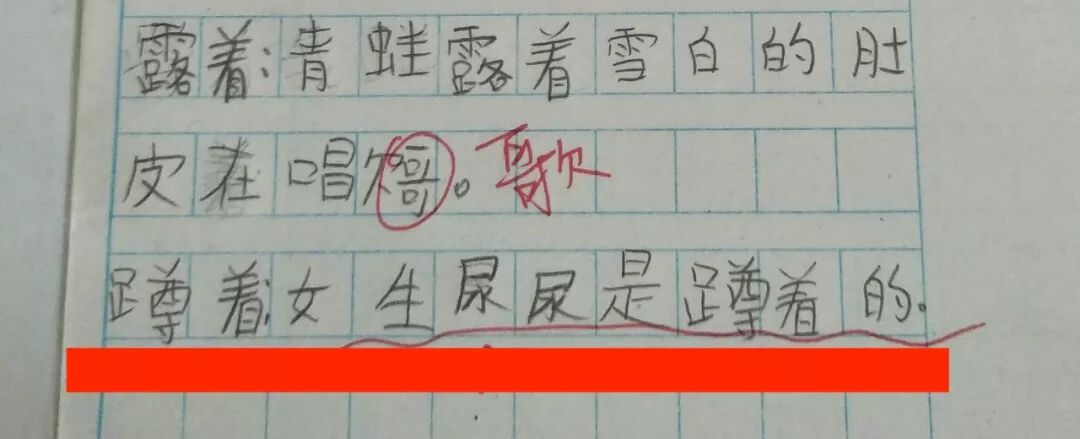 露着:青蛙露着雪白的肚
皮在唱欠哥。歌
蹲着:女生尿尿是蹲着的.